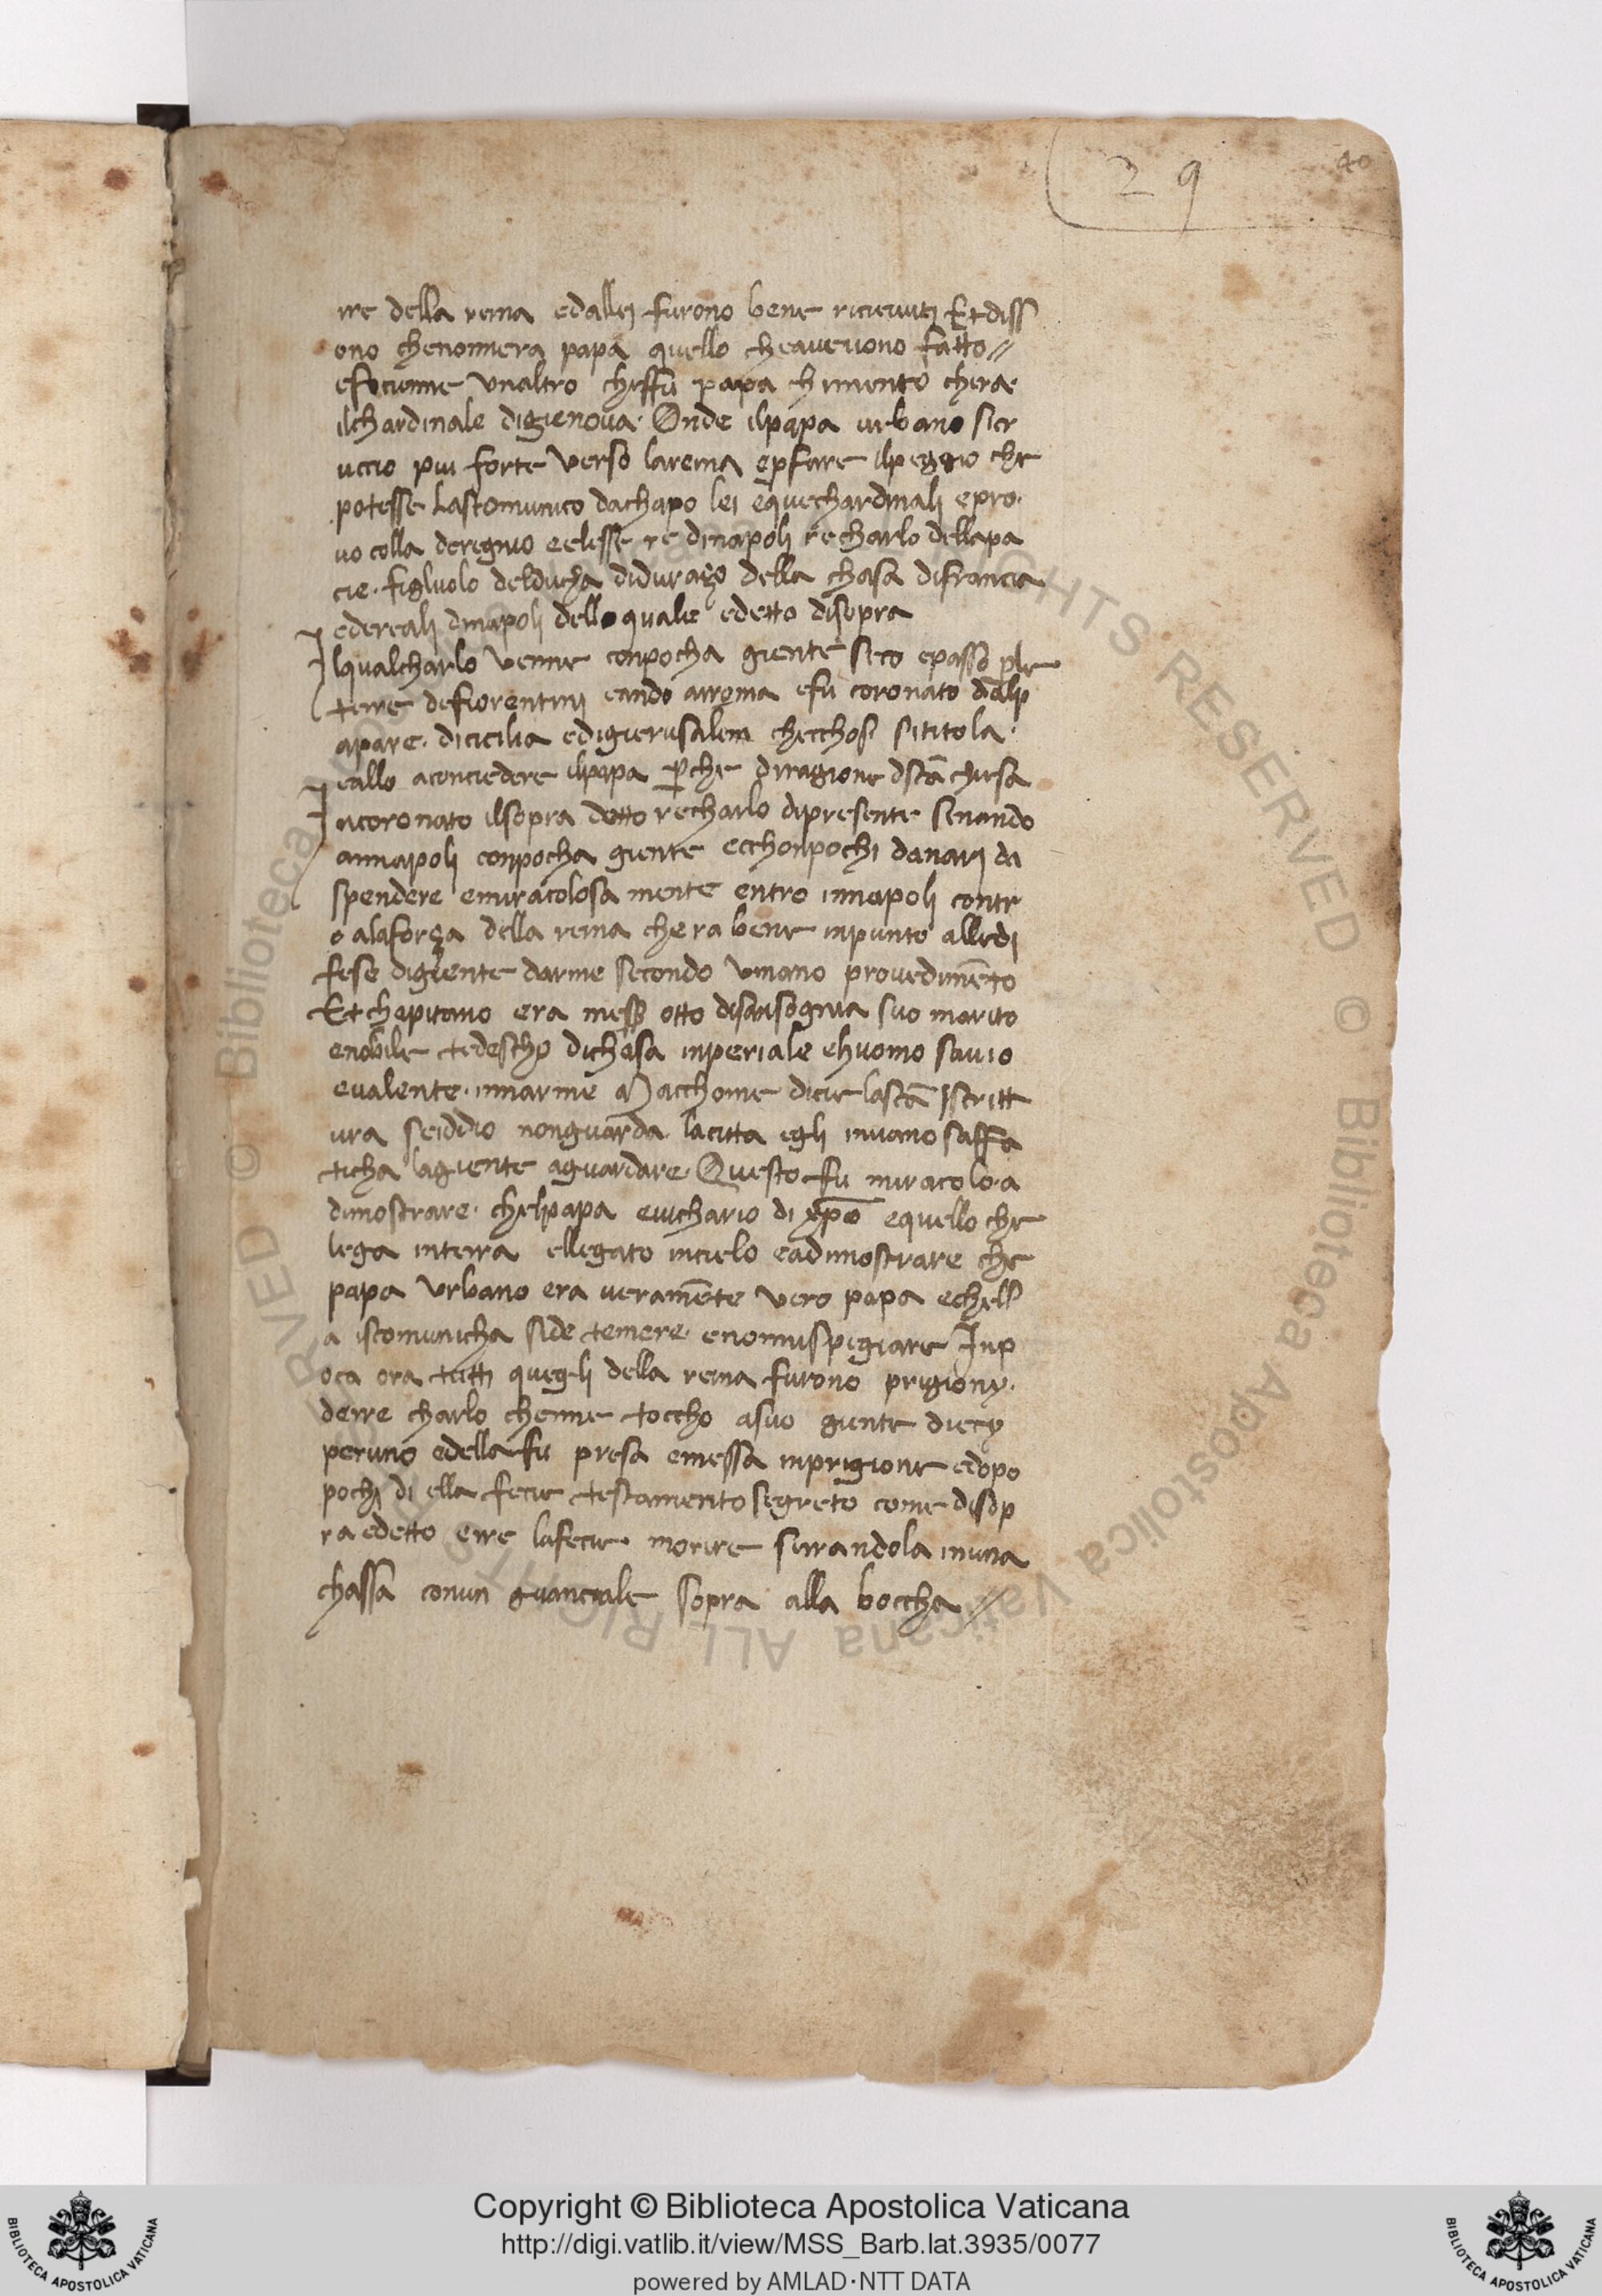 29
40
rre della reina edallej furono bene ricieuutj Et diss
ono chenonnera papa quello cheaueuono fatto //
efecionne vnaltro cheffu papa himento chera
ilchardinale digienoua. Onde ilpapa vrbano sicr
uccio piu forte verso lareina epfare ilpeggio che
potesse Lascomunico dachapo lei equechardinalj epro.
uo colla deregnio eelesse re dinapolj re charlo dellapa
cie. figluolo delducha diduraço della chasa difrancia
edereali dinapolj delloquale edetto disopra
Ilqualcharlo venne conpocha giente seco epasso ple
terre defiorentinj eando arroma efu coronato dalp
apa re. dicicilia edigierusalem checchosi sititola.
eallo aconciedere ilpapa perche diragione dsca chiesa
Incoronato ilsopra detto recharlo dipresente senando
annapolj conpocha giente ecchonpochi danarj da
spendere emiracolosa mente entro innapolj contr
o alaforça della reina chera bene inpunto alledi
fese digiente darme secondo vmano prouedimēto
Et chapitano era mess otto disansognia suo marito
enobile tedescho dichasa inperiale ehuomo sauio
eualente. innarme Macchome dicie lascā Iscritt
ura seiddio nonguarda lacitta egli inuano saffa
ticha lagiente aguardare. Questo fu miracolo. a
dimostrare. chelpapa euichario di xpō equello che
lega interra ellegato incielo eadimostrare che
papa Vrbano era veramēte vero papa echell
a iscomunicha side temere. enonnispegiare Inp
oca ora tuttj quegli della reina furono prigionj.
derre charlo chenne toccho asuo giente diecj
peruno edella fu presa emessa inprigione edopo
pochi di ella fecie testamento segreto come disop
ra edetto erre lafecie. morire serrandola inuna
chassa conun guanciale sopra alla boccha //
Copyright © Biblioteca Apostolica Vaticana
http://digi.vatlib.it/view/MSS_Barb.lat.3935/0077
powered by AMLAD·NTT DATA
BIBLIOTECA APOSTOLICA VATICANA
BIBLIOTECA APOSTOLICA VATICANA
© Biblioteca Apostolica Vaticana ALL RIGHTS RESERVED